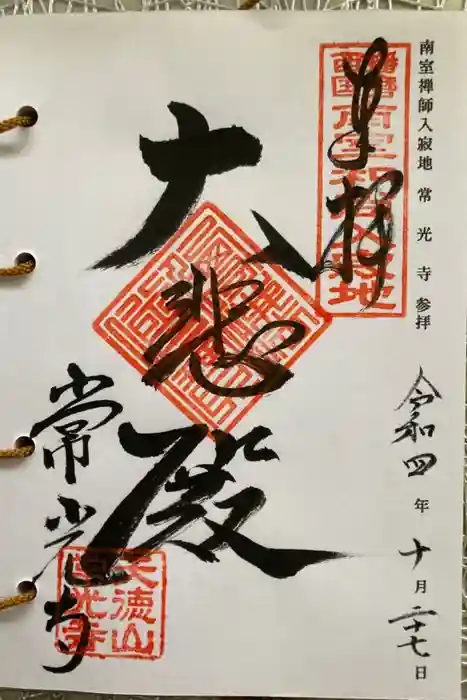 南室禅師入寂地 常光寺 参拝
令和四年十月二十七日
奉拝
播磨
西国
南室和尚入寂地
大悲殿
常光寺
天徳山
常光寺